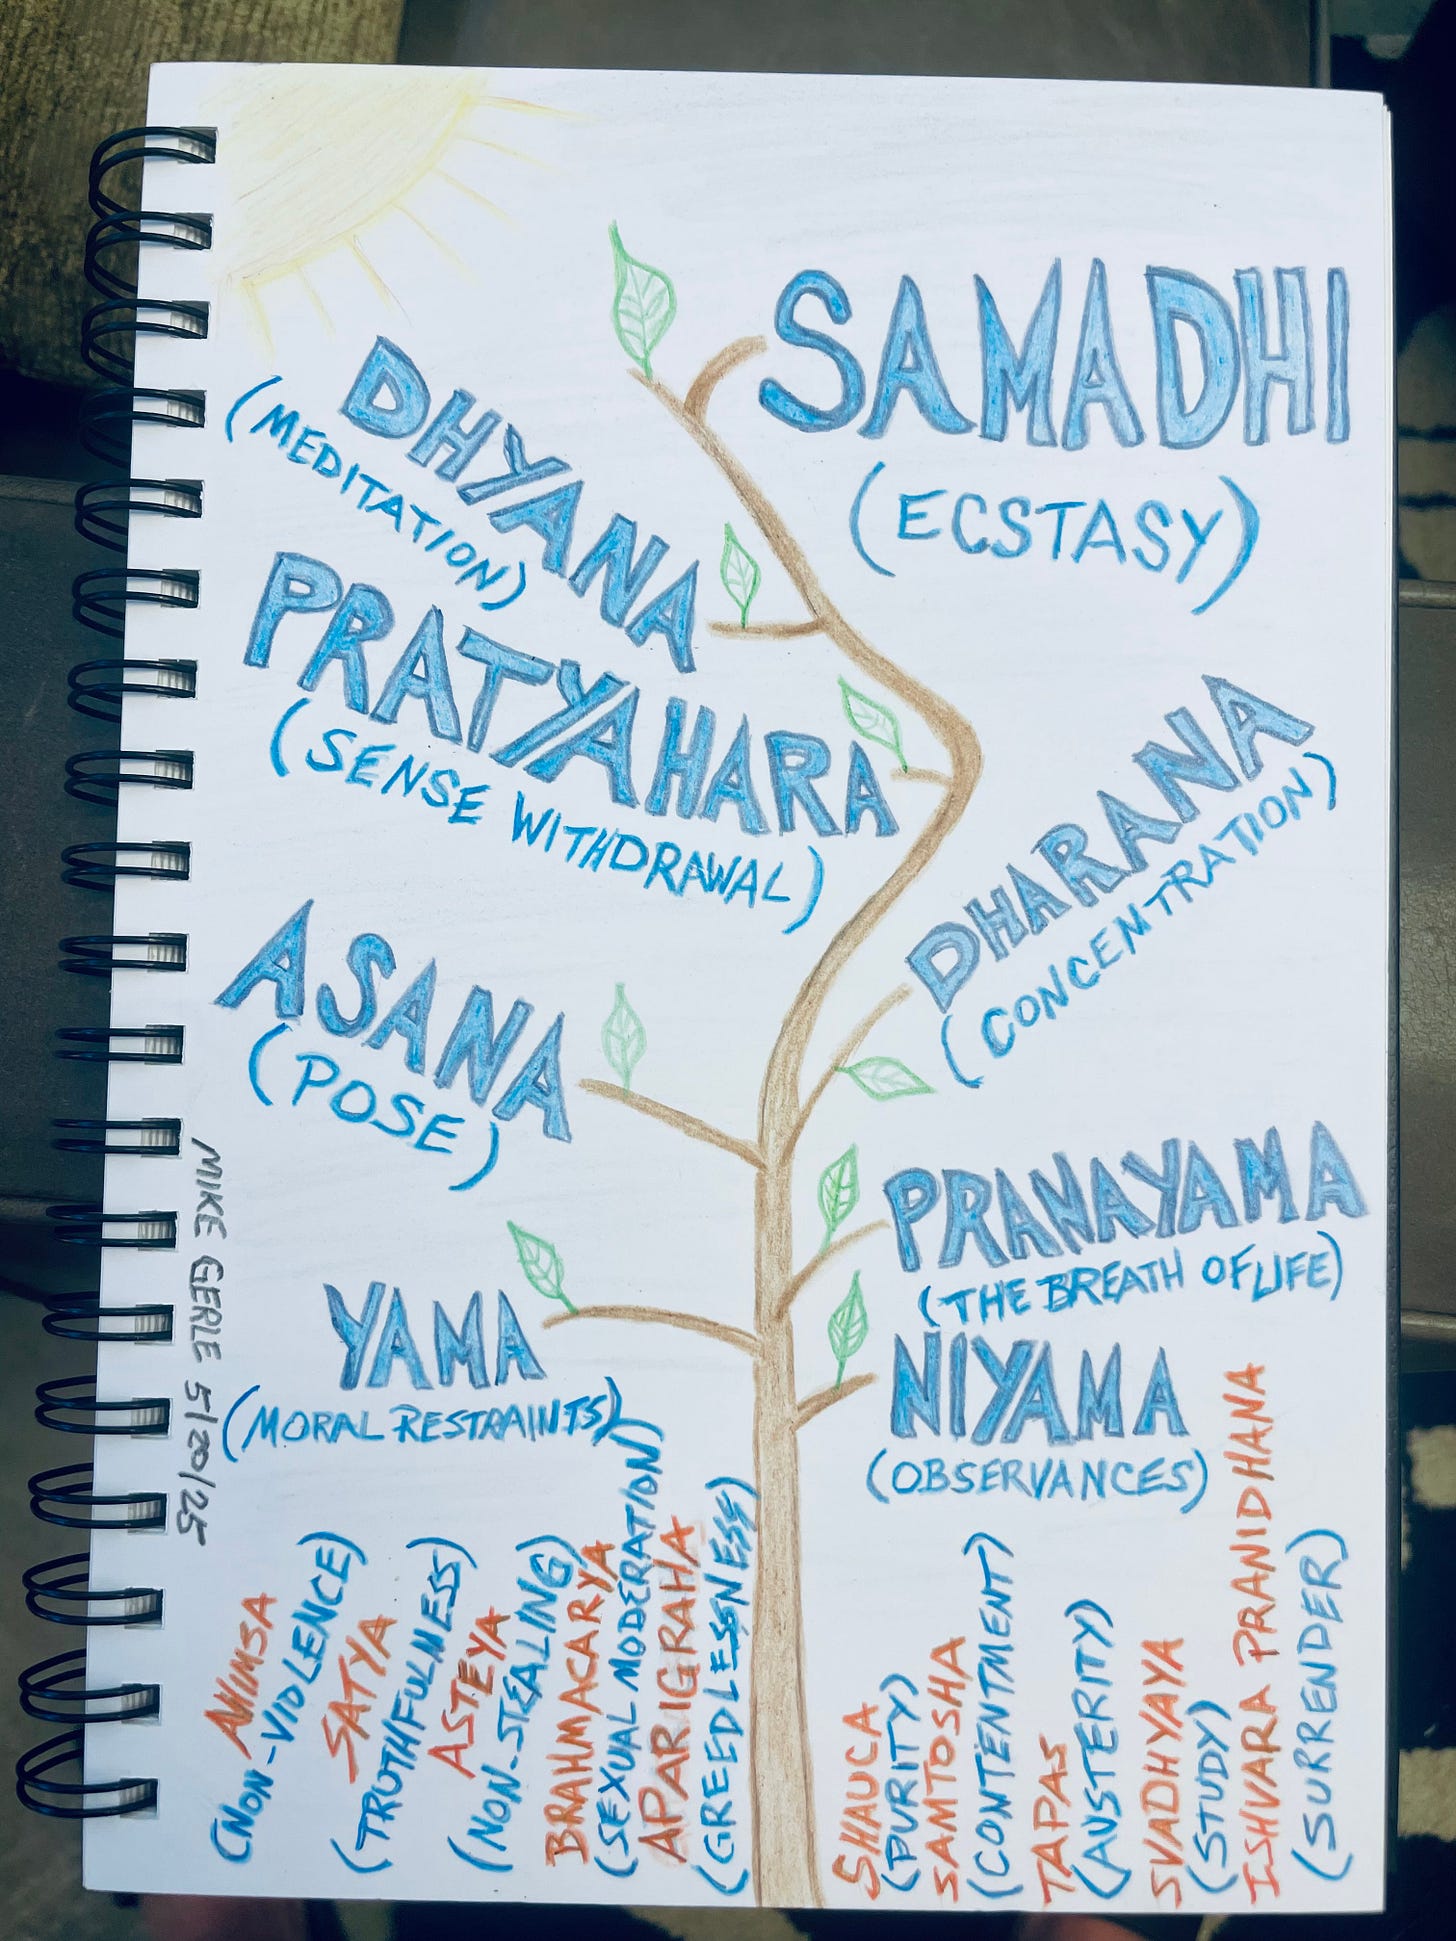 SAMADHI
(ECSTASY)
DHYANA
(MEDITATION)
PRATYAHARA
(SENSE WITHDRAWAL)
DHARANA
(CONCENTRATION)
ASANA
(POSE)
PRANAYAMA
(THE BREATH OF LIFE)
YAMA
(MORAL RESTRAINTS)
NIYAMA
(OBSERVANCES)
AHIMSA
(NON-VIOLENCE)
SATYA
(TRUTHFULNESS)
ASTEYA
(NON-STEALING)
BRAHMACARYA
(SEXUAL MODERATION)
APARIGRAHA
(GREEDLESSNESS)
SHAUCA
(PURITY)
SAMTOSHA
(CONTENTMENT)
TAPAS
(AUSTERITY)
SVADHYAYA
(STUDY)
ISHVARA PRANIDHANA
(SURRENDER)
MIKE GERLE 5/20/25